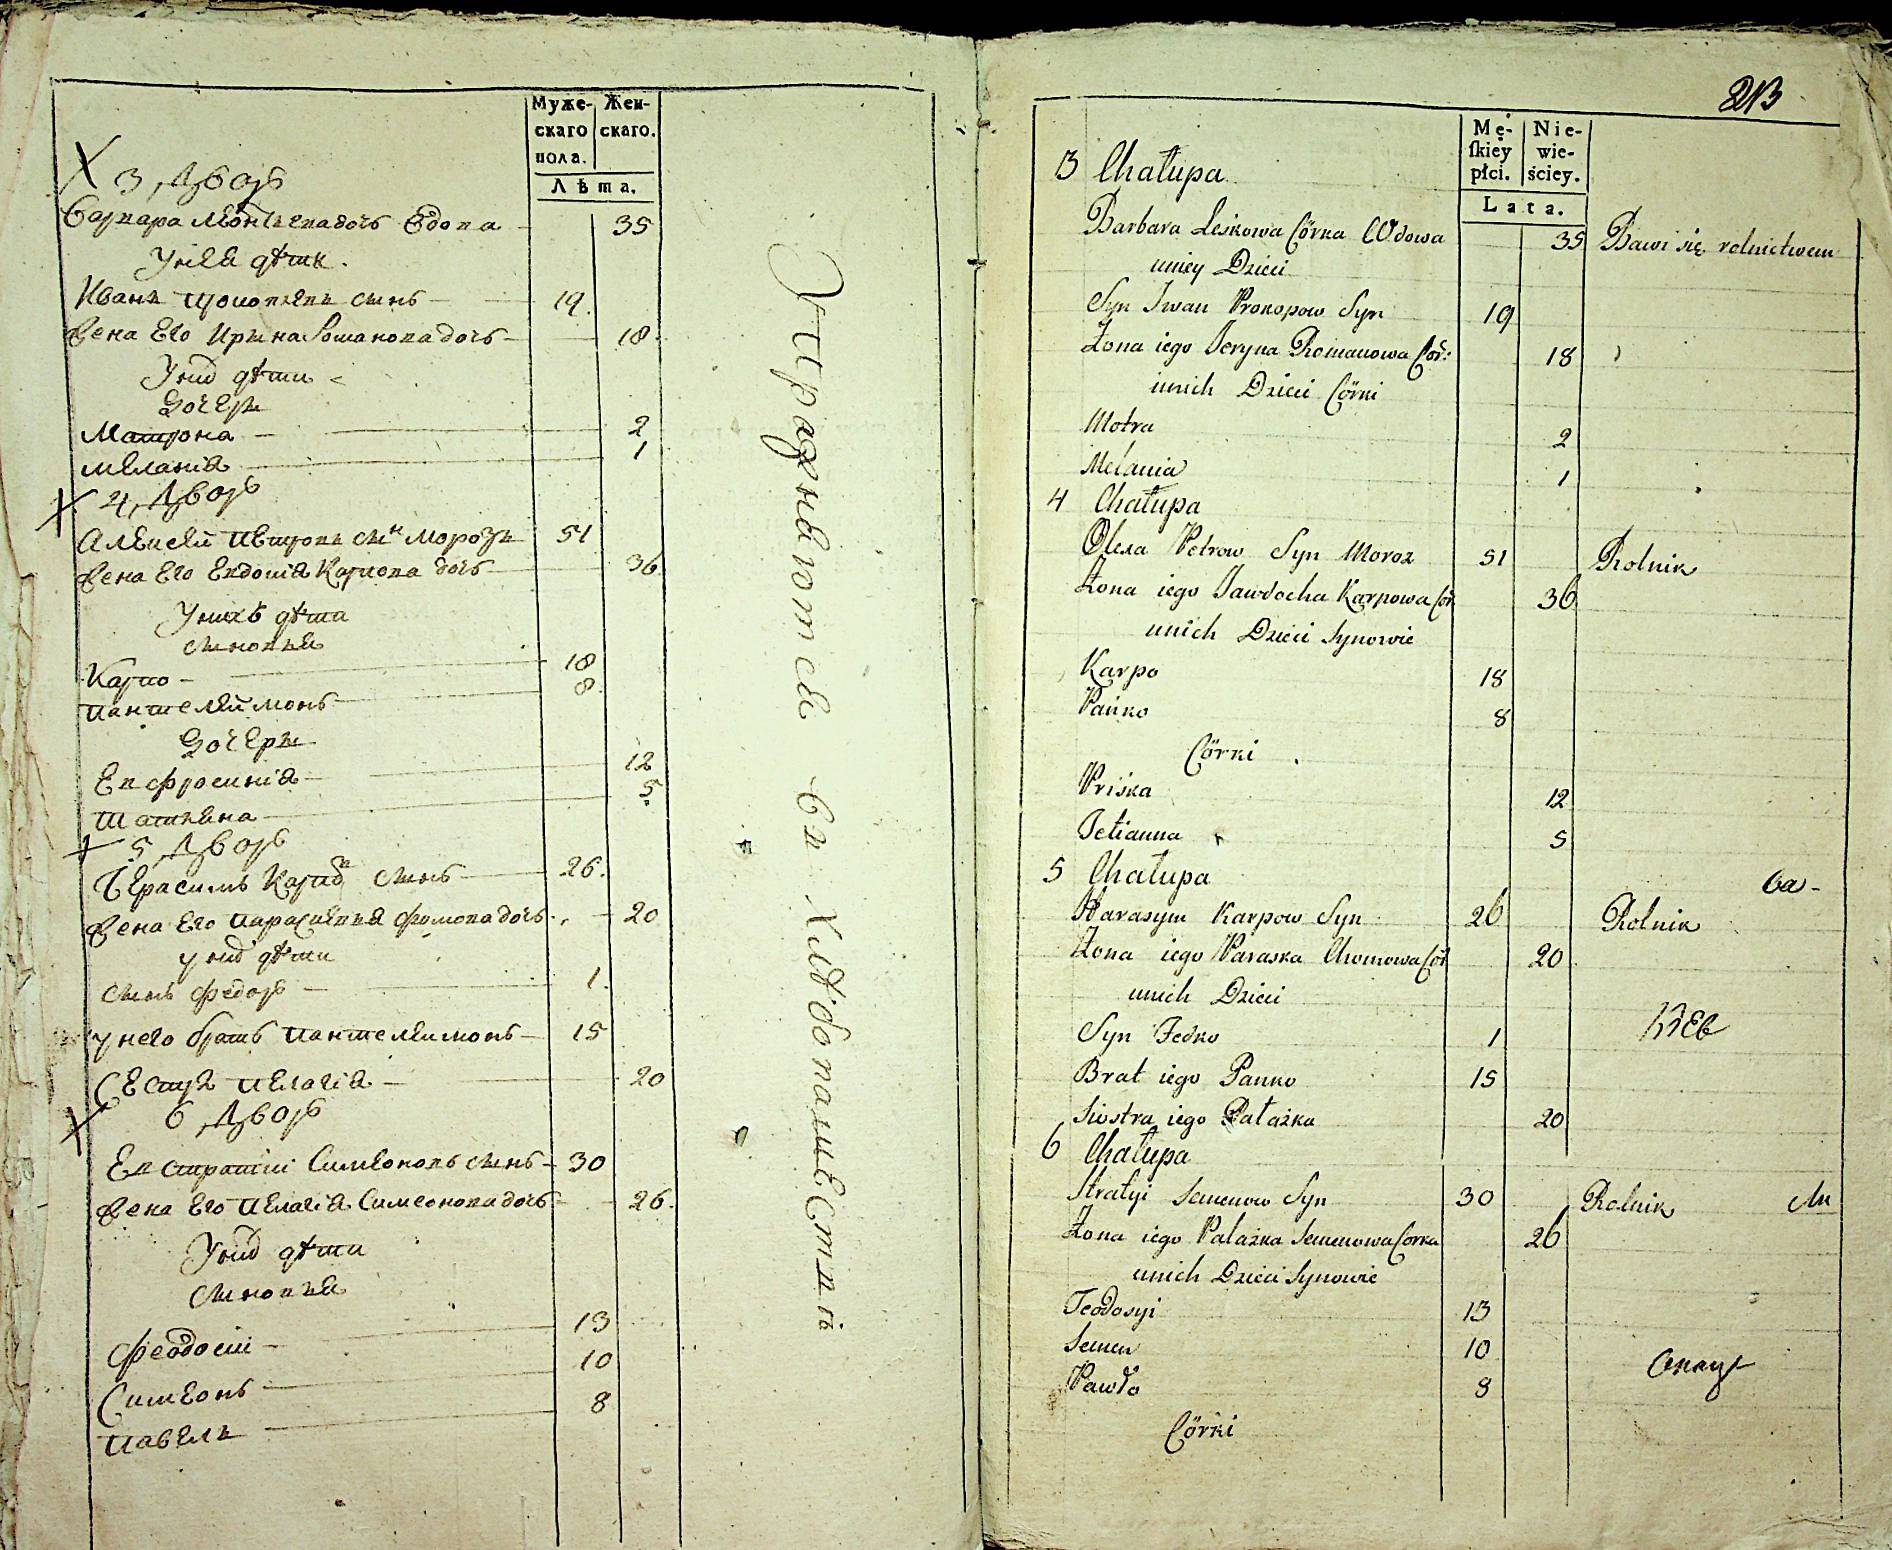 Муже-
скаго
пола.
Жен-
скаго.
Лѣта.
3 Дворъ
Варвара Леонтиева дочь вдова 35
У нея дѣти.
Иванъ Прокопиевъ синъ 19.
Жена Его Ирина Романова дочь 18
У них дѣти
Дочери
Матрона 2
Меланія 1
4 Дворъ
Алексѣй Петровъ син Морозъ 51
Жена Его Евдокія Карпова дочь 36
У нихъ дѣти
Синовья
Карпо 18
Пантелеймонъ 8
Дочери
Евфросинія 12
Татьяна 5
5 Дворъ
Герасимъ Карповъ синъ 26.
Жена Его Параскевия Фомова дочь 20
у них дѣти
Синъ Федоръ 1
у него братъ Пантелеимонъ 15
Сестра Пелагія 20
6 Дворъ
Евстратій Симеоновъ синъ 30
Жена Его Пелагія Симеонова дочь 26.
У них дѣти
Синовья
Феодосій 13
Симеонъ 10
Павелъ 8
Упражняются въ хлѣбопашествѣ
213
Mę-
ſkiey
płci.
Nie-
wie-
ściey.
Lata.
3 Chałupa
Barbara Leskowa Córka Wdowa 35 Bawi się rolnictwem
uniey Dzieci
Syn Iwan Prokopow Syn 19
Żona iego Jeryna Romanowa Cór: 18
unich Dzieci Córki
Motra 2
Melania 1
4 Chałupa
Olexa Petrow Syn Moroz 51 Rolnik
Żona iego Jawdocha Karpowa Cór 36
unich Dzieci Synowie
Karpo 18
Pańko 8
Córki
Priśka 12
Tetianna 5
5 Chałupa
Harasym Karpow Syn 26 Rolnik
Żona iego Paraska Chomowa Cór 20
unich Dzieci
Syn Fedko 1
Brat iego Panko 15
Siostra iego Pałażka 20
6 Chałupa
Stratyi Semenow Syn 30 Rolnik
Żona iego Pałażka Semenowa Corka 26
unich Dzieci Synowie
Teodosyi 13
Semen 10
Pawło 8
Córki